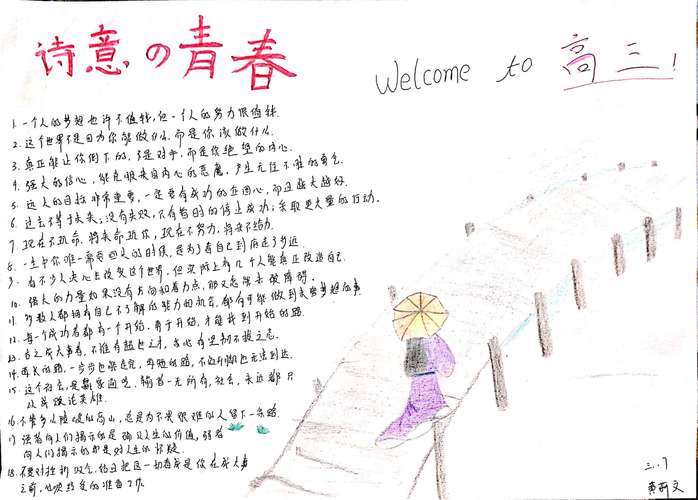 诗意の青春
Welcome to 高三!
1. 一个人的梦想也许不值钱,但一个人的努力很值钱.
2. 这个世界不是因为你能做什么,而是你该做什么.
3. 真正能让你倒下的,不是对手,而是你绝望的内心.
4. 强大的信心,能克服来自内心的恶魔,产生无往不胜的勇气.
5. 远大的目标非常重要,一定要有成功的企图心,而且越大越好.
6. 过去不等于未来;没有失败,只有暂时的停止成功;采取更大量的行动.
7. 现在不玩命,将来命玩你,现在不努力,将来不给力.
8. 一生中你唯一需要回头的时候,是为了看自己到底走了多远
9. 有不少人决心去改变这个世界,但实际上有几个人能真正改造自己.
10. 强大的力量如果没有方向和着力点,那又怎能去破障碍.
11. 多数人都拥有自己不了解的能力和机会,都有可能做到未曾梦想的事
12. 每一个成功者都有一个开始.勇于开始,才能找到开始的路.
13. 古之成大事者,不惟有超世之才,亦必有坚韧不拔之志.
14. 再长的路,一步步也能走完,再短的路,不迈开脚也无法到达.
15. 这个社会,是赢家通吃,输者一无所有,社会,永远都只
以成败论英雄.
16. 不管多么险峻的高山,总是为不畏艰难的人留下一条路.
17. 强者向人们揭示的是确认人生的价值,弱者
向人们揭示的却是对人生的怀疑.
18. 不要对挫折叹气,姑且把这一切看成是你在成大事
之前,必须经受的准备工作.
三.7